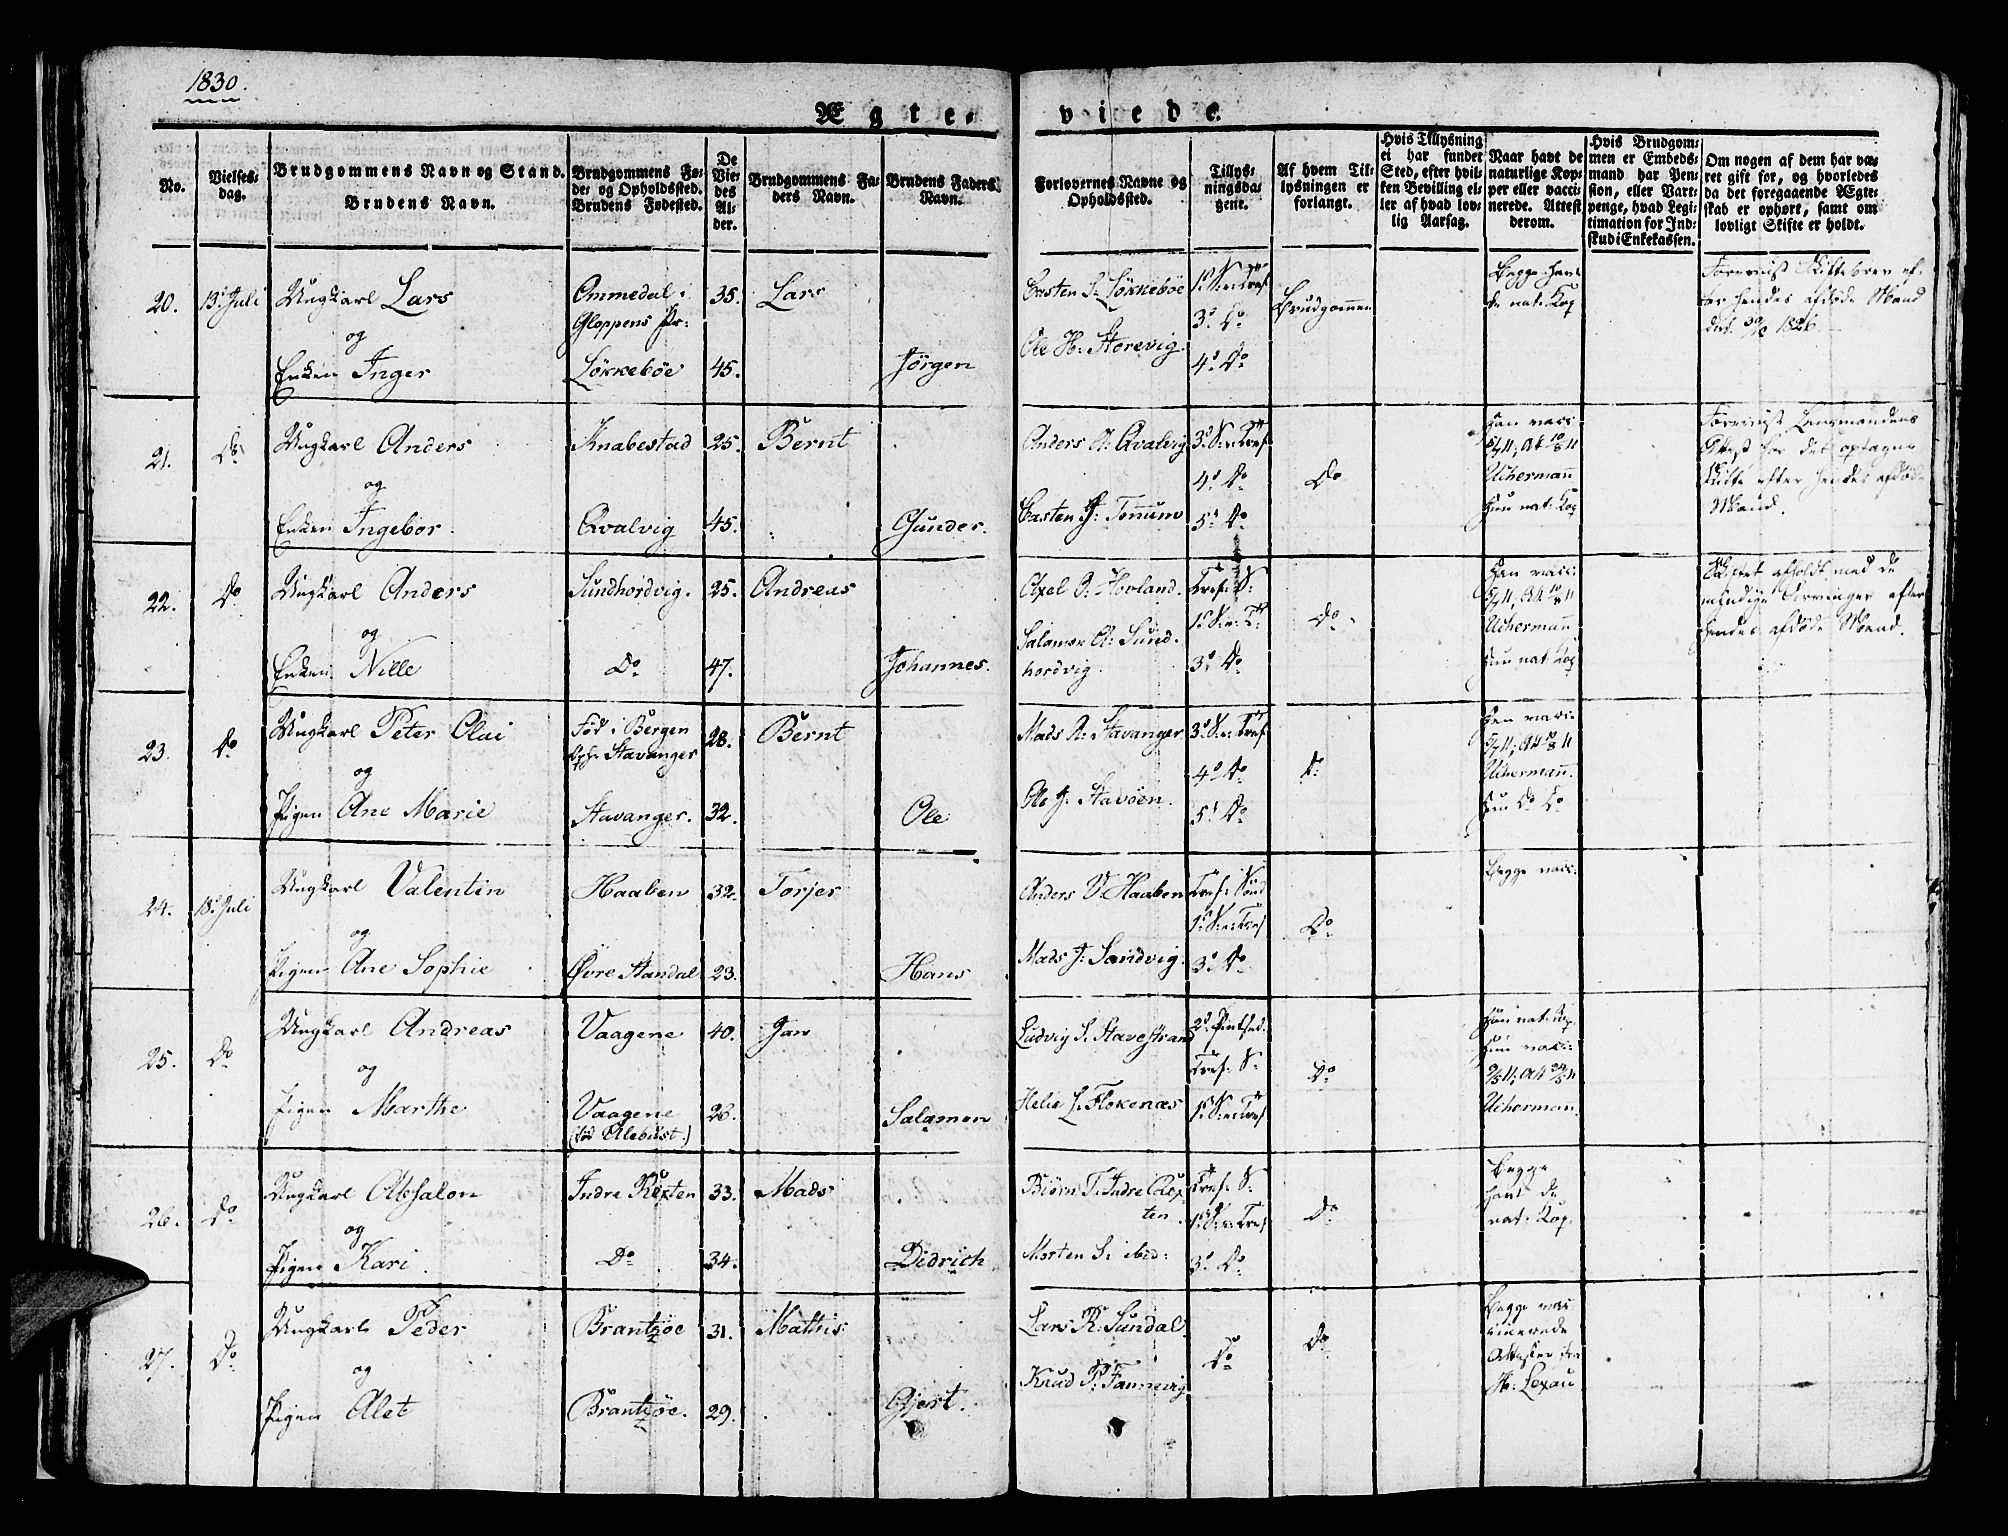 1830.
Ægte-
viede.
No.
Vielses-
dag.
Brudgommens Navn og Stand.
Brudens Navn.
Brudgommens Fø-
de- og Opholdssted.
Brudens Fødested.
De
Vie-
des
Al-
der.
Brudgommens Fa-
ders Navn.
Brudens Faders
Navn.
Forlovernes Navne og
Opholdssted.
Tillys-
ningsda-
gene.
Af hvem Til-
lysningen er
forlangt.
Hvis Tillysning
ei har fundet
Sted, efter hvil-
ken Bevilling el-
ler af hvad lov-
lig Aarsag.
Naar havt de
naturlige Kop-
per eller vacci-
nerede. Attest
derom.
Hvis Brudgom-
men er Embeds-
mand har Pen-
sion, eller Vart-
penge, hvad Legi-
timation for Ind-
skud i Enkekassen.
Om nogen af dem har væ-
ret gift før, og hvorledes
da det foregaaende Ægte-
skab er ophørt, samt om
lovligt Skifte er holdt.
20. 13. Juli Ungkarl Lars
og
Enken Inger
Ommedal i
Gloppens Pr:
Løkkebøe
35.
45.
Lars
Jörgen
Casten S. Løkkebøe
Ole H. Storevig
1. S. e: Tref
3. Do
4. Do
Brudgommen
Begge hav-
de nat: Kop
Foreviist Skiftebrev ef-
ter hendes afdøde Mand
1826.
21. Do Ungkarl Anders
og
Enken Ingebor.
Knabestad
Qvalvig
25.
45.
Bernt
Gunder.
Anders A. Qvalvig
Casten J: Tonnum
3. S. e: Tref
4. Do
5. Do
Do
Han vacc:
Uchermann
Hun nat: Kop
Foreviist Lensmandens
Attest for det optagne
Skifte efter hendes afdøde
Mand.
22. Do Ungkarl Anders
og
Enken Nille
Sundhordvig.
Do
25.
47.
Andreas
Johannes.
Axel O. Hovland.
Salamon A. Sund-
hordvig.
Tref: S:
1. S: e: T:
3. Do
Do
Han vacc:
Uchermann
Hun nat: Kop
Skiftet afholdt med de
myndige Arvinger efter
hendes afdøde Mand.
23. Do Ungkarl Peter Olai
og
Pigen Ane Marie
Fød i Bergen
Oph: Stavanger
Stavanger.
28.
32.
Bernt
Ole
Mads R. Stavanger
Ole J. Stavöen.
3. S. e: Tref
4. Do
5. Do
Do
Han vacc:
Uchermann.
Hun Do Do
24. 18. Juli Ungkarl Valentin
og
Pigen Ane Sophie
Haaben
Øvre Standal
32.
23.
Torjer
Hans
Anders V. Haaben
Mads J. Sandvig.
Tref: Sönd
1. S. e: Tref
3. Do
Do
Begge vacc:
25. Do Ungkarl Andreas
og
Pigen Marthe
Vaagene
Vaagene
(fød Alebust.)
40.
26.
Jan
Salamon
Ludvig S. Stavestrand
Helie L. Flokenæs
2. Pintsed.
Tref: S:
1. S. e: Tref
Do
Han nat: Kop.
Hun vacc:
Uchermann.
26. Do Ungkarl Absalon
og
Pigen Kari.
Indre Rexten
Do
33.
34.
Mads
Didrich
Biørn T. Indre Rex-
ten.
Morten S: ibid:
Tref: S:
1. S: e: Tref
3. Do
Do
Begge
havt de
nat: Kop.
27. Do Ungkarl Peder
og
Pigen Alet
Brantzöe
Brantzöe.
31.
29.
Mathis
Gjert.
Lars R. Sundal.
Knud P. Fannevig
Do
Do
Begge vac-
cinerede
Attester fra
Hr: Lexau